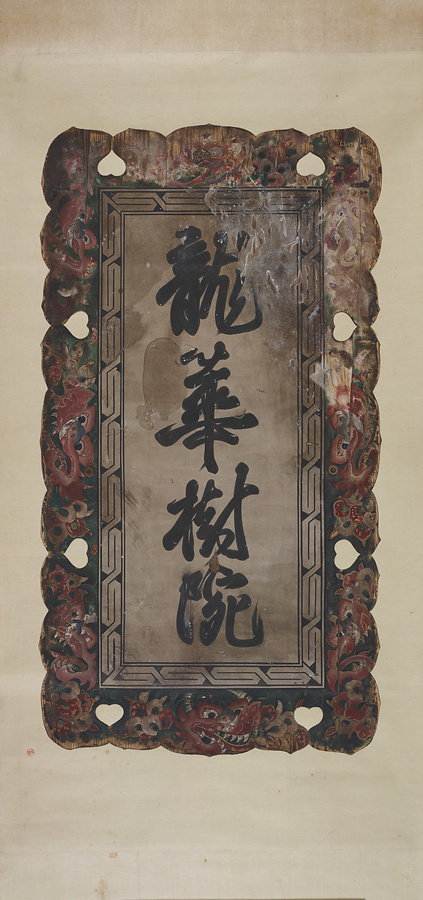 龍華樹院